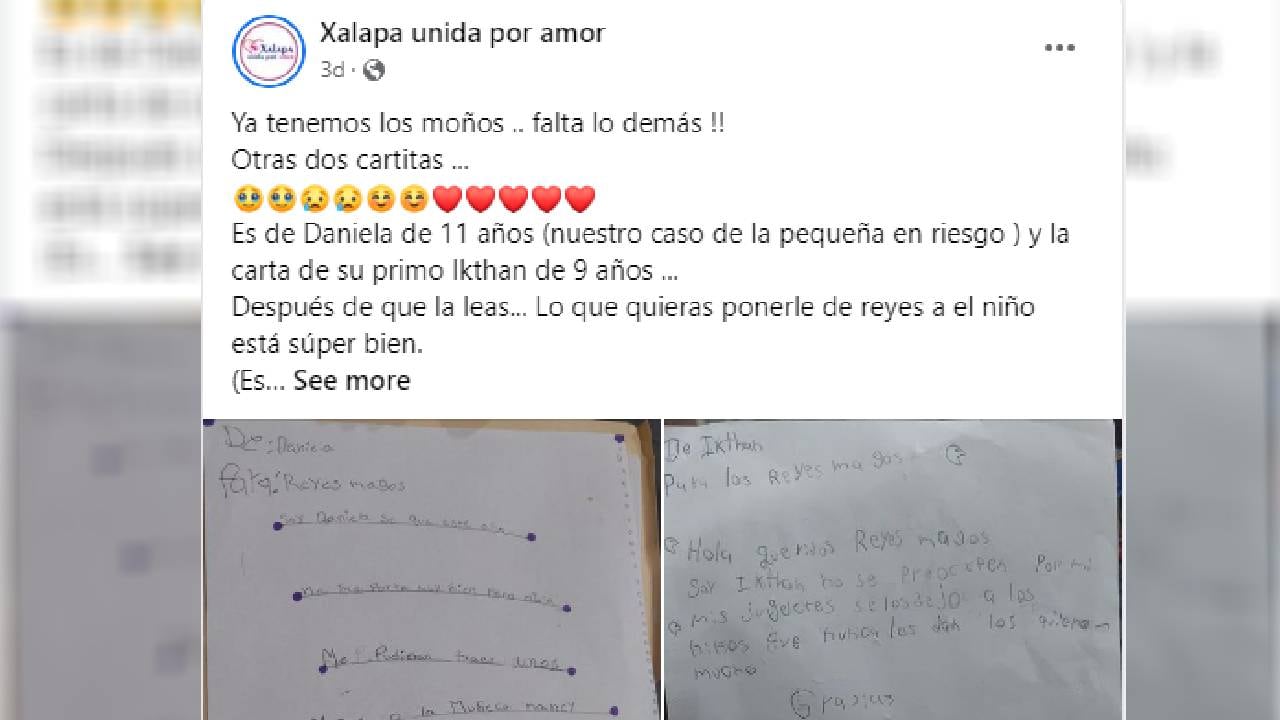 Xalapa
unida por amor
Xalapa unida por amor
3d ·
Ya tenemos los moños .. falta lo demás !!
Otras dos cartitas ...
🥹🥹😢😢☺️☺️❤️❤️❤️❤️❤️
Es de Daniela de 11 años (nuestro caso de la pequeña en riesgo ) y la
carta de su primo Ikthan de 9 años ...
Después de que la leas... Lo que quieras ponerle de reyes a el niño
está súper bien.
(Es... See more
De: Daniela
Para: Reyes magos
Soy Daniela se que este año
me porte muy bien
Me Pudieran traer unos
la Muñeca nancy
De Ikthan
Para los Reyes magos
Hola queridos Reyes magos
Soy Ikthan no se Preocupen Por mi
mis jugetes se los dejo a los
niños que nunca les dan los quieren
mucho
Gracias